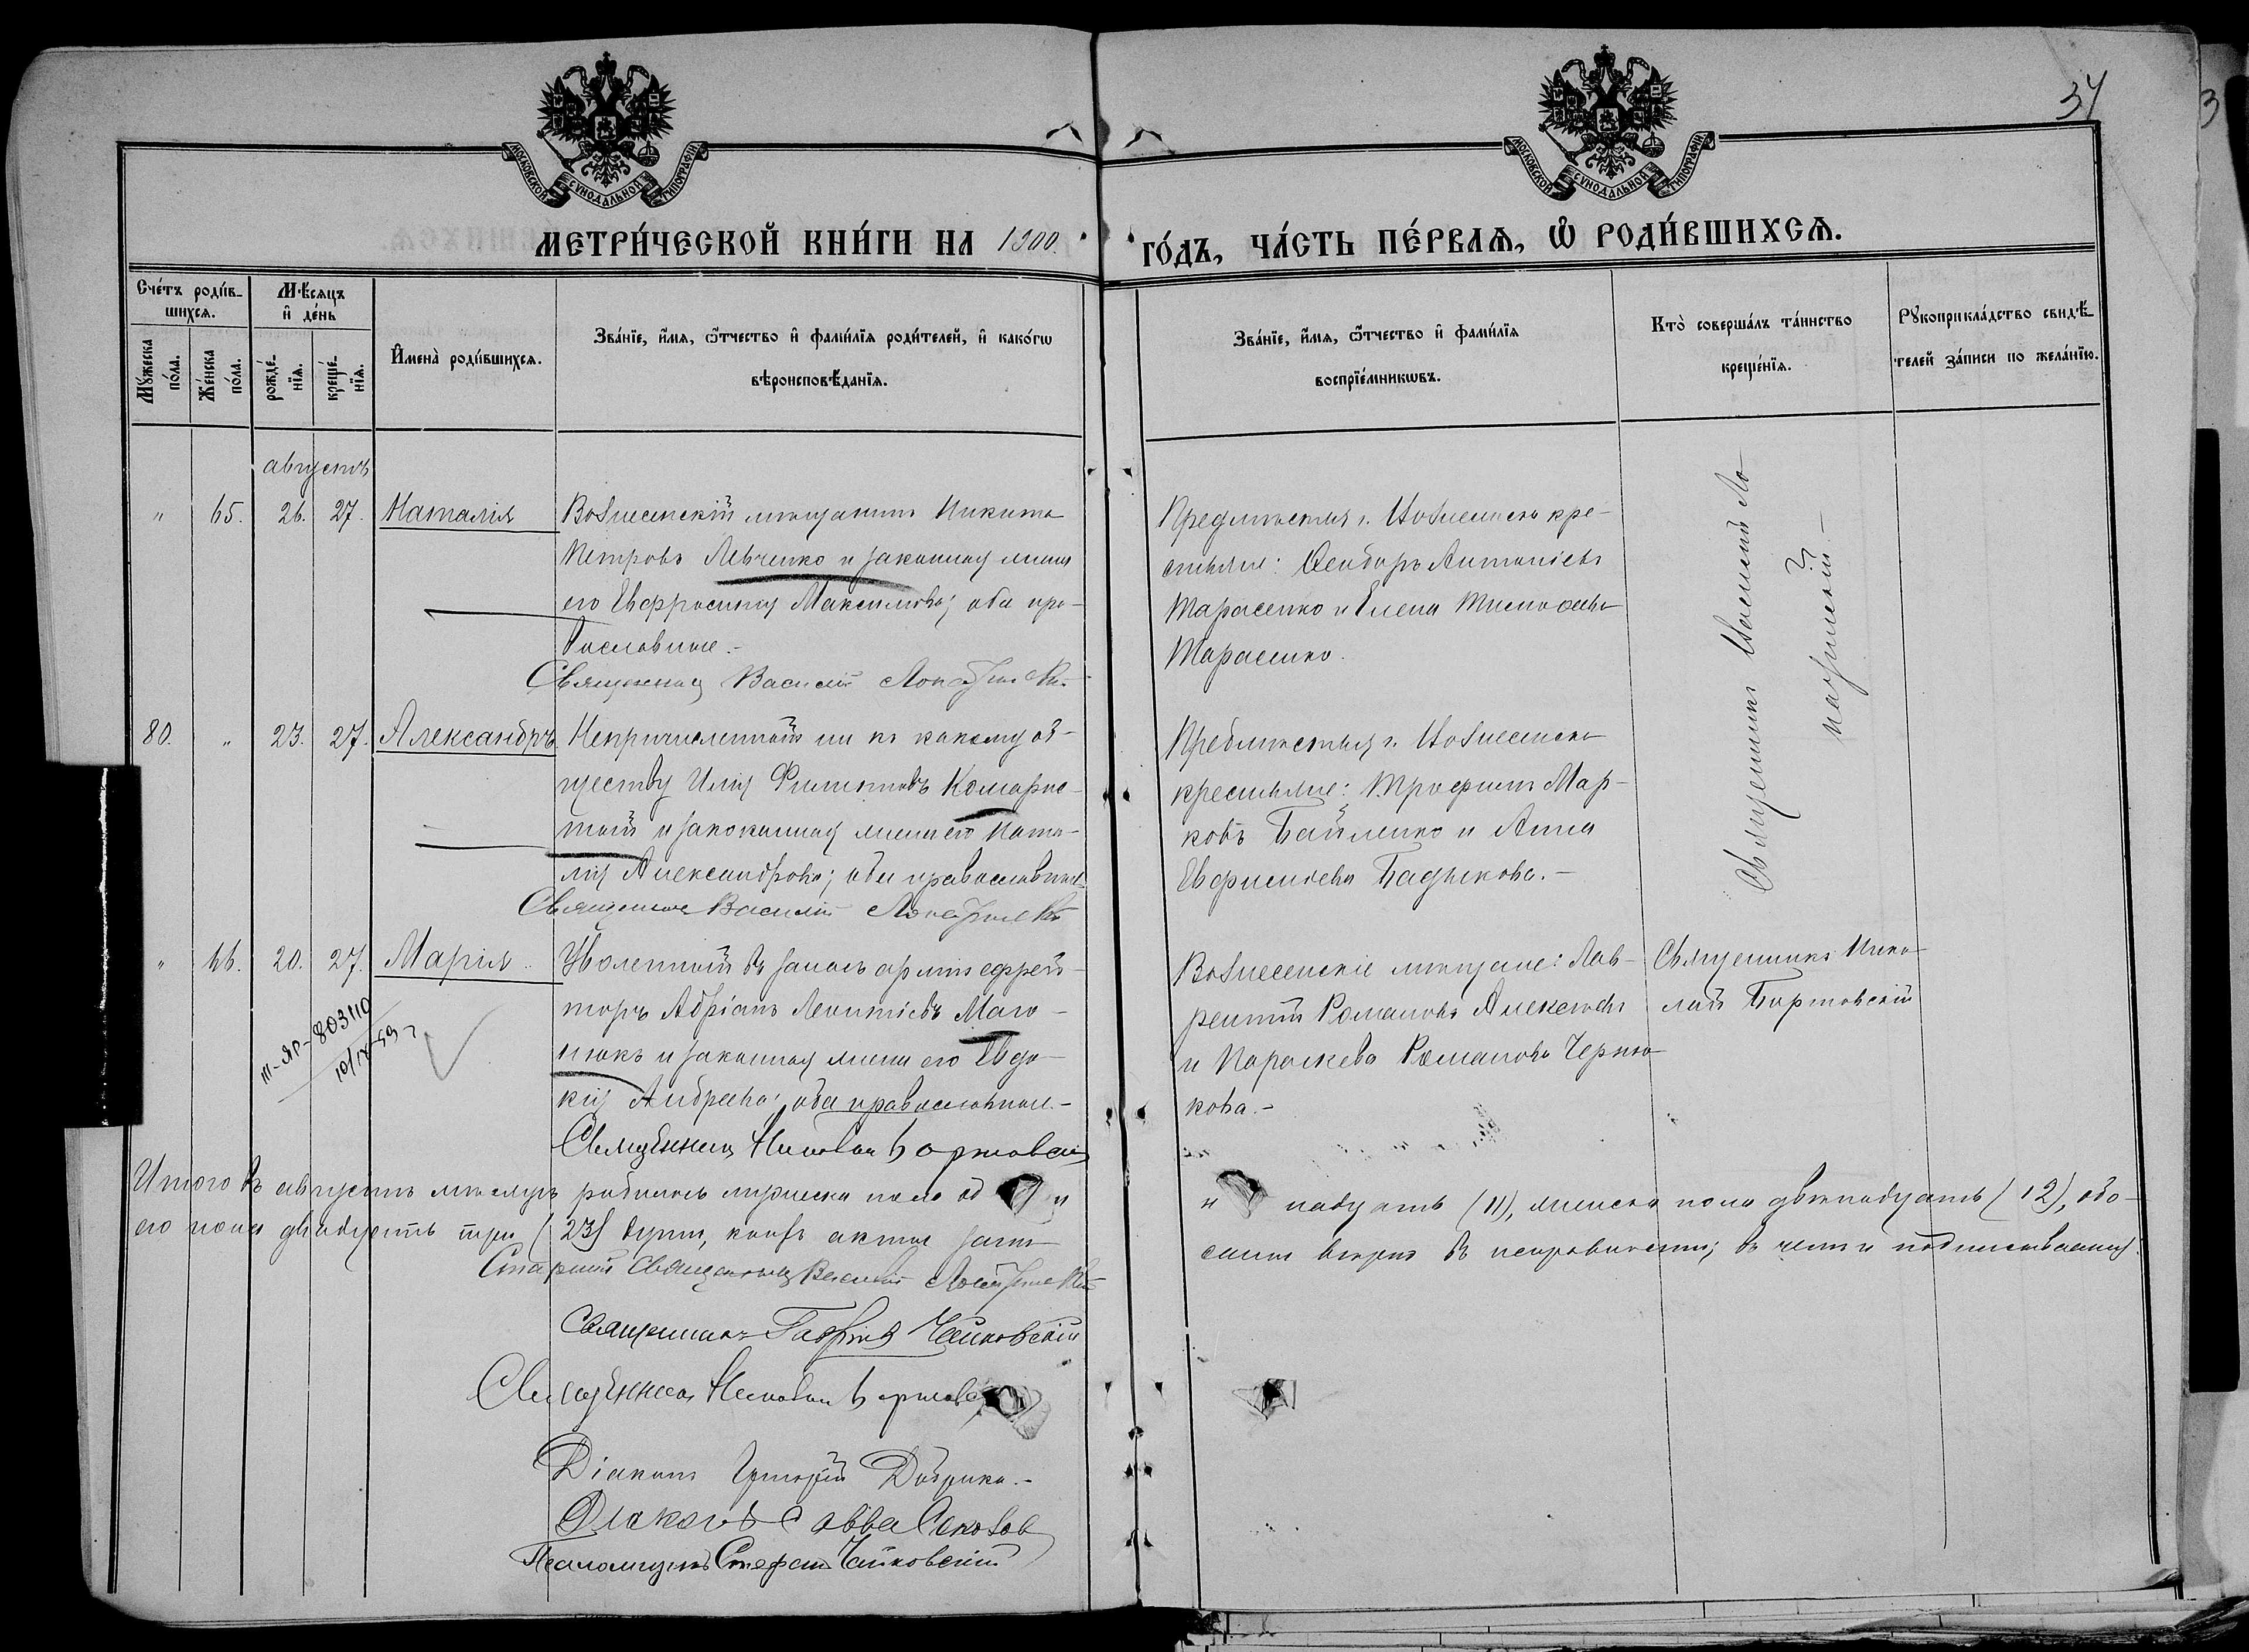 34
МОСКОВСКОЙ СѴНОДАЛЬНОЙ ТИПОГРАФІИ
МОСКОВСКОЙ СѴНОДАЛЬНОЙ ТИПОГРАФІИ
МЕТРИ́ЧЕСКОЙ КНИ́ГИ НА 1900. ГО́ДЪ, ЧА́СТЬ ПЕ́РВАѦ, Ѡ҆ РОДИ́ВШИХСѦ.
Сче́тъ роди́в-
шихсѧ.
Мꙋ́жеска
по́ла.
Же́нска
по́ла.
Мѣ́сѧцъ
и҆ де́нь
рожде́-
нїѧ.
креще́-
нїѧ.
И҆мена̀ роди́вшихсѧ.
Зва́нїе, и҆́мѧ, ѻ҆́тчество и҆ фами́лїѧ роди́телей, и҆ како́гѡ
вѣроисповѣ́данїѧ.
Зва́нїе, и҆́мѧ, ѻ҆́тчество и҆ фами́лїѧ
воспрїе́мникѡвъ.
Кто̀ соверша́лъ та́инство
креще́нїѧ.
Рꙋкоприкла́дство свидѣ́-
телей за́писи по жела́нїю.
августъ
" 65. 26. 27. Наталія
Вознесенскій мѣщанинъ Никита
Петровъ Левченко и законная жена
его Евфросинія Максимова; оба пра-
вославные.-
Священник Василій Лопатинскій
Предмѣстья г. Вознесенска кре-
стьяне: Ѳеодоръ Антоніевъ
Тарасенко и Елена Тимоѳеева
Тарасенко.
Священникъ Василій Ло-
патинскій -
80. " 23. 27. Александръ
Непричисленный ни къ какому об-
ществу Илія Филиповъ Комарис-
тый и законная жена его Ната-
лія Александрова; оба православные.
Священник Василій Лопатинскій
Предмѣстья г. Вознесенска
крестьяне: Трофимъ Мар-
ковъ Байленко и Анна
Евфиміева Бадыкова.-
" 66. 20. 27. Марія
Уволенный въ запасъ арміи ефрей-
торъ Адріанъ Леонтіевъ Маго-
нюкъ и законная жена его Евдо-
кія Андреева; оба православные.-
Священник Николай Бортовскій
Вознесенскіе мѣщане: Лав-
рентій Романовъ Алексеевъ
и Параскева Романова Черню-
кова.-
Священникъ Нико-
лай Бортовскій
III-ЯР-803110
10/IX-59 г
Итого въ августѣ мѣсяцѣ родилось мужеска пола од
надцать (11), женска пола двѣнадцать (12), обо-
его пола двадцать три (23) души, коихъ акты запи-
саны вѣрно въ исправности; въ чемъ и подписываемся.
Старшій Священникъ Василій Лопатинскій
Священникъ Гавріилъ Чайковскій
Священник Николай Бортовс
Діаконъ Григорій Добрика.-
Діаконъ Савва Соколов
Псаломщикъ Стефанъ Чайковскій